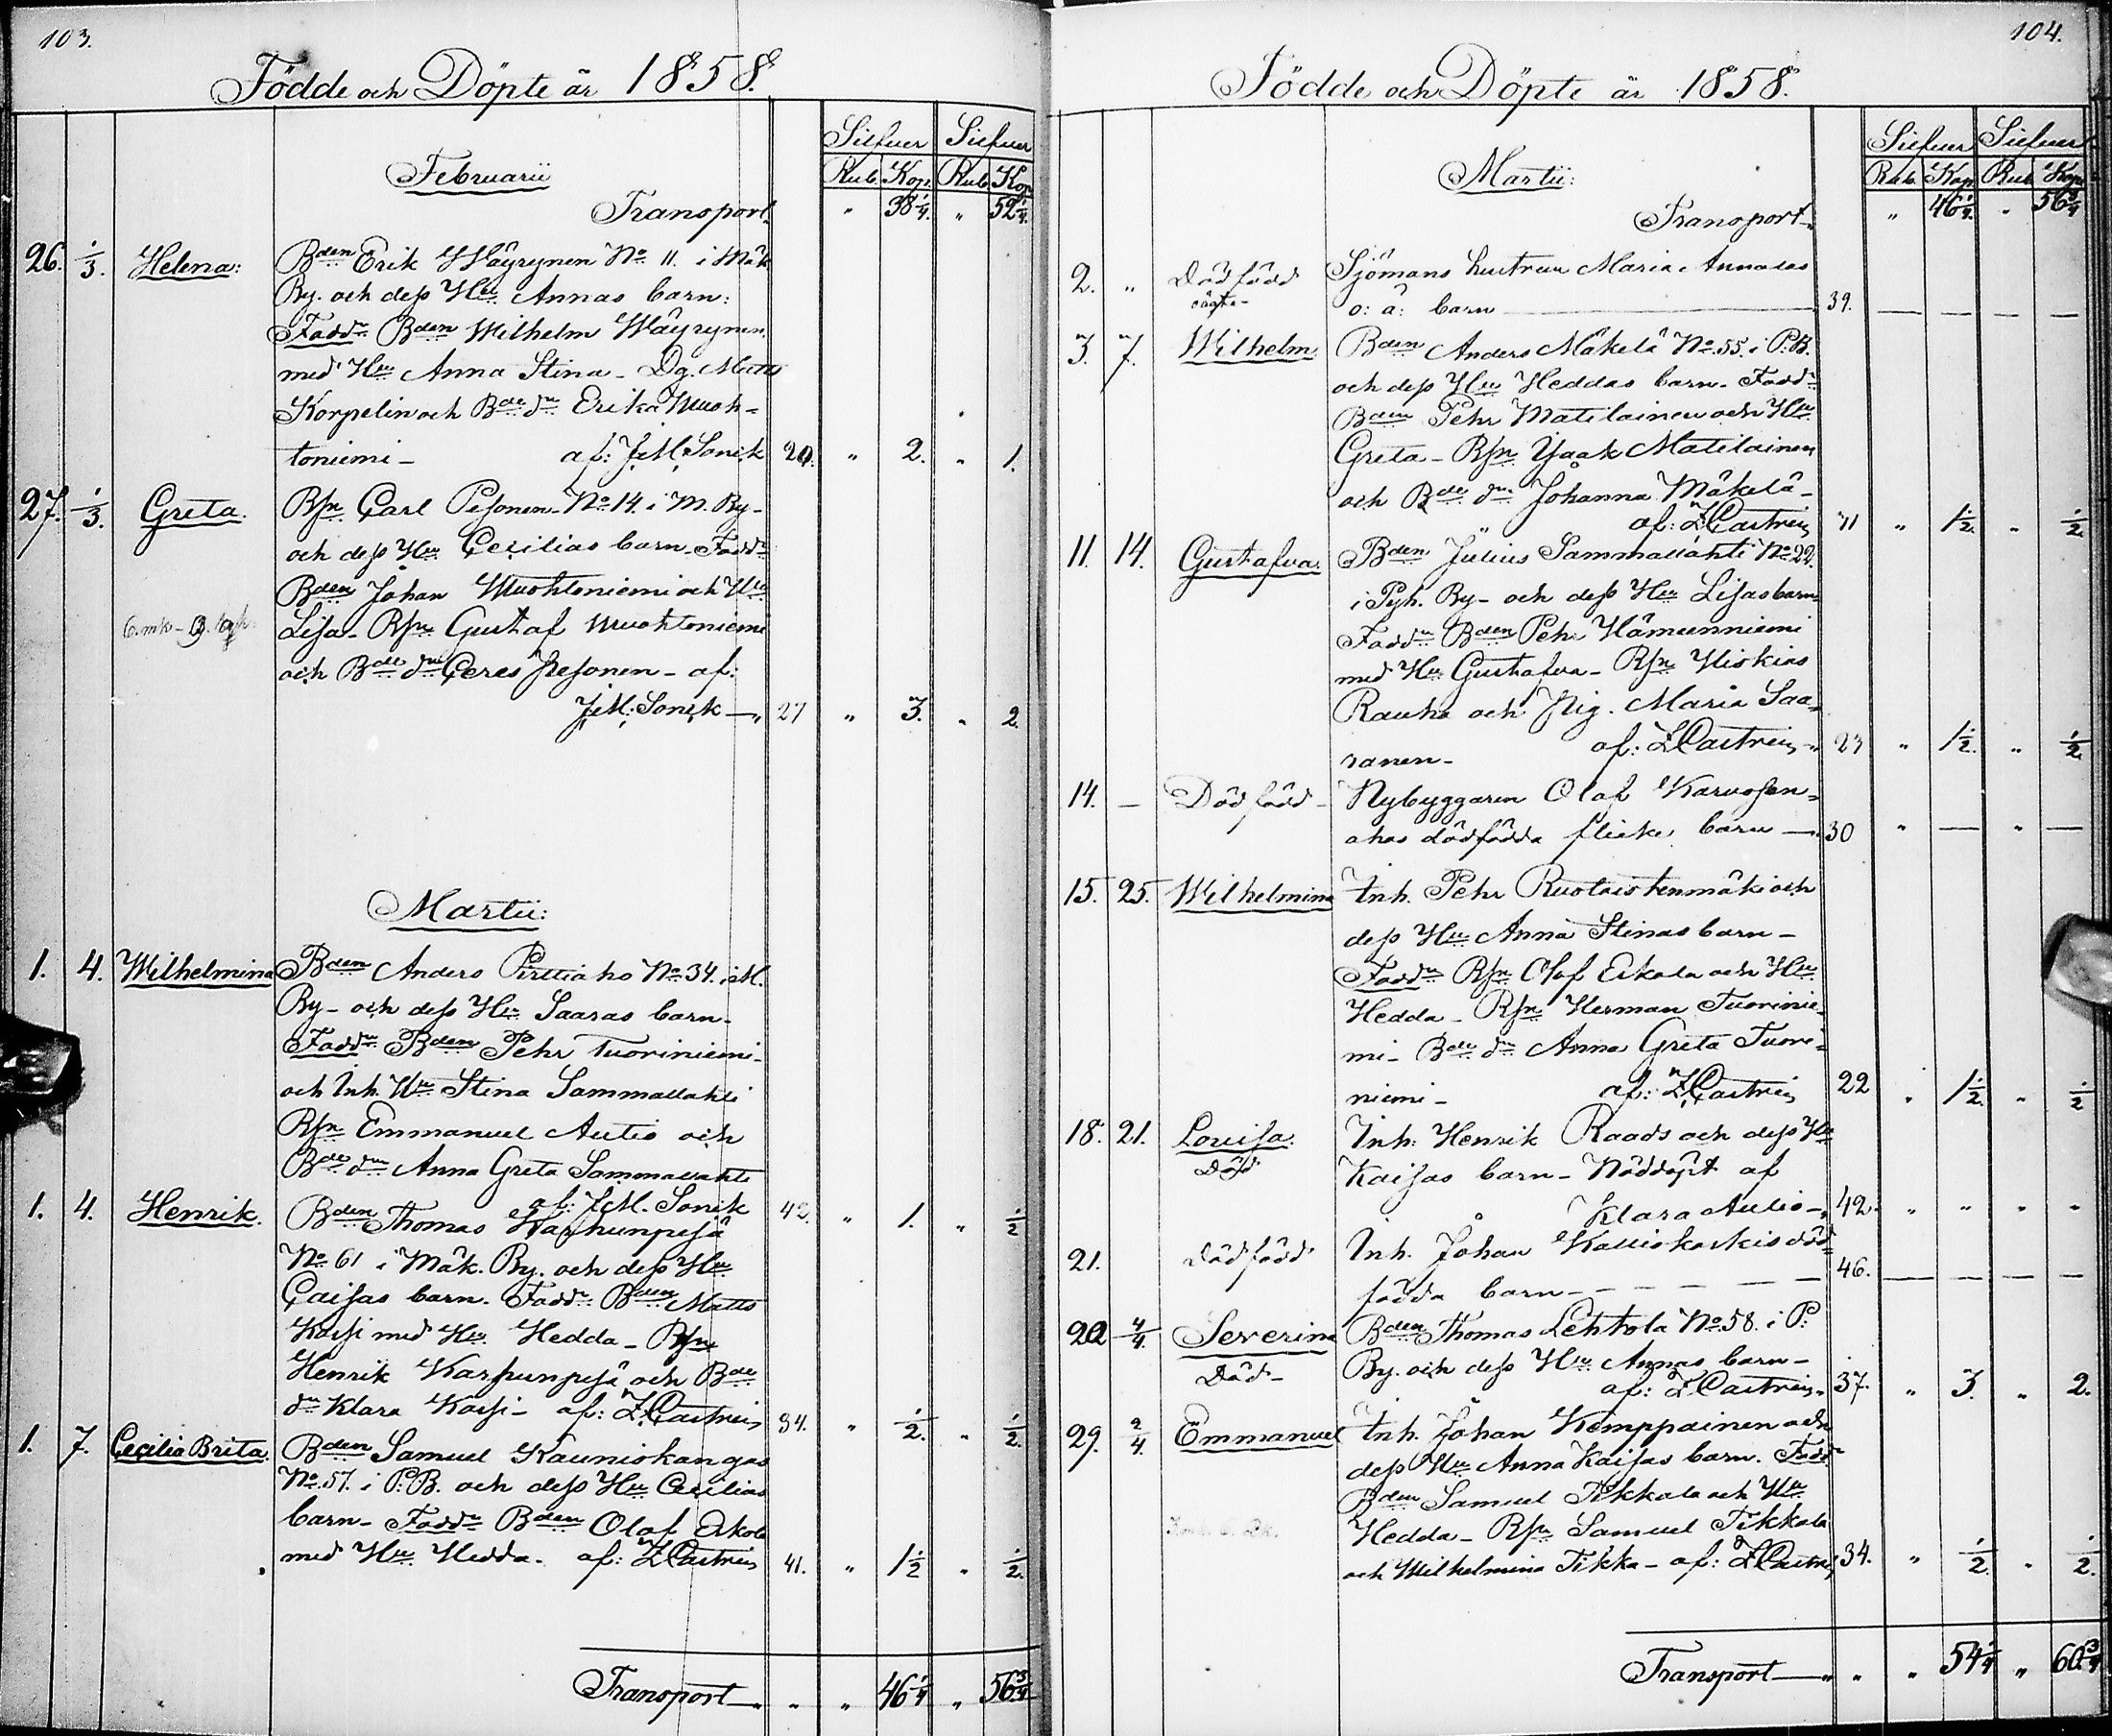 103.
Födde och Döpte år 1858.
Silfver Silfver
Februarii
Rub. Kop. Rub. Kop.
Transport " 38 1/4. " 52 1/4.
26. 1/3. Helena: Bden Erik Wäyrynen No 11. i Mäk
By. och dess Hu Annas barn:
Faddr Bden Wilhelm Wäyrynen
med Hu Anna Stina - Dg. Matts
Korpelin och Bde dr Erika Muoh-
toniemi - af: J.M. Sonck 20. " 2. " 1.
27. 1/3. Greta. Bsn Carl Pesonen - No 14. i M. By -
och dess Hu Cecilias barn - Faddr
Bden Johan Muohtoniemi och Hu
6. mk - 
Lisa - Bsn Gustaf Muohtoniemi
och Bde dr Ceres Pesonen - af:
J.M. Sonck - " 27 " 3. " 2.
Martii:
1. 4. Wilhelmina Bden Anders Pirttiaho No 34. i M.
By - och dess Hu Saaras barn -
Faddr Bden Pehr Tuoriniemi -
och Inh. Hu Stina Sammallahti
Bsn Emmanuel Autio och
Bde dr Anna Greta Sammallahti
af: J.M. Sonck 42. " 1. " 1/2
1. 4. Henrik. Bden Thomas Karhunpesä
No 61 i Mäk. By. och dess Hu
Caisas barn. Faddr Bden Matts
Kassi med Hu Hedda - Bsn
Henrik Karhunpesä och Bde
dr Klara Kassi - af: Z. Castrén 34. " 1/2. " 1/2.
1. 7. Cecilia Brita. Bden Samuel Kauniskangas
No. 57. i P.B. och dess Hu Cecilias
barn - Faddr Bden Olof Eskola
med Hu Hedda - af: Z. Castrén 41. " 1 1/2 " 1/2.
Transport - " " " 46 1/4 " 56 3/4
104.
Födde och Döpte år 1858.
Silfver Silfver
Martii:
Rub. Kop. Rub. Kop.
Transport - " 46 1/4. " 56 3/4
2. " Dödfödd Sjömans hustrun Maria Annasas
oägta - o: ä: barn 39. — — — —
3. 7. Wilhelm. Bden Anders Mäkelä No. 55. i P.B.
och dess Hu Heddas barn - Faddr
Bden Pehr Matilainen och Hu
Greta - Bsn Isaak Matilainen
och Bde dr Johanna Mäkelä -
af: Z. Castrén 31 " 1 1/2. " 1/2.
11. 14. Gustafva. Bden Julius Sammallahti No 22.
i Pyh. By - och dess Hu Lisas barn
Faddr Bden Pehr Hämeenniemi
med Hu Gustafva - Bsn Hiskias
Rauha och Pig. Maria Saa-
ranen - af: Z. Castrén - " 23 " 1 1/2. " 1/2
14. — Dödfödd - Nybyggaren Olof Karvosen-
ahos dödfödda flicke barn — 30 " — " —
15. 25. Wilhelmina Inh. Pehr Ruotaistenmäki och
dess Hu Anna Stinas barn -
Faddr Bsn Olof Eskola och Hu
Hedda - Bsn Herman Tuorinie-
mi - Bde dr Anna Greta Tuori-
niemi - af: Z. Castrén 22 " 1 1/2. " 1/2
18. 21. Lovisa. Inh: Henrik Raads och dess Hu
Död Kaisas barn - Nöddöpt af
Klara Autio - " 42. " " " "
21. Dödfödd Inh. Johan Kalliokoskis död-
födda barn - - - - - 46. — — — —
22 4/4. Severina Bden Thomas Lehtola No. 58. i P:
Död - By. och dess Hu Annas barn -
af: Z. Castrén - " 37. " 3. " 2.
29. 2/4. Emmanuel Inh. Johan Kemppainen och
dess Hu Anna Kaisas barn. Faddr
Bden Samuel Tikkala och Hu
Hedda - Bsn Samuel Tikkala
och Wilhelmina Tikka - af: Z. Castrén 34. " 1/2. " 1/2.
Transport — " " " 54 1/4 " 60 3/4